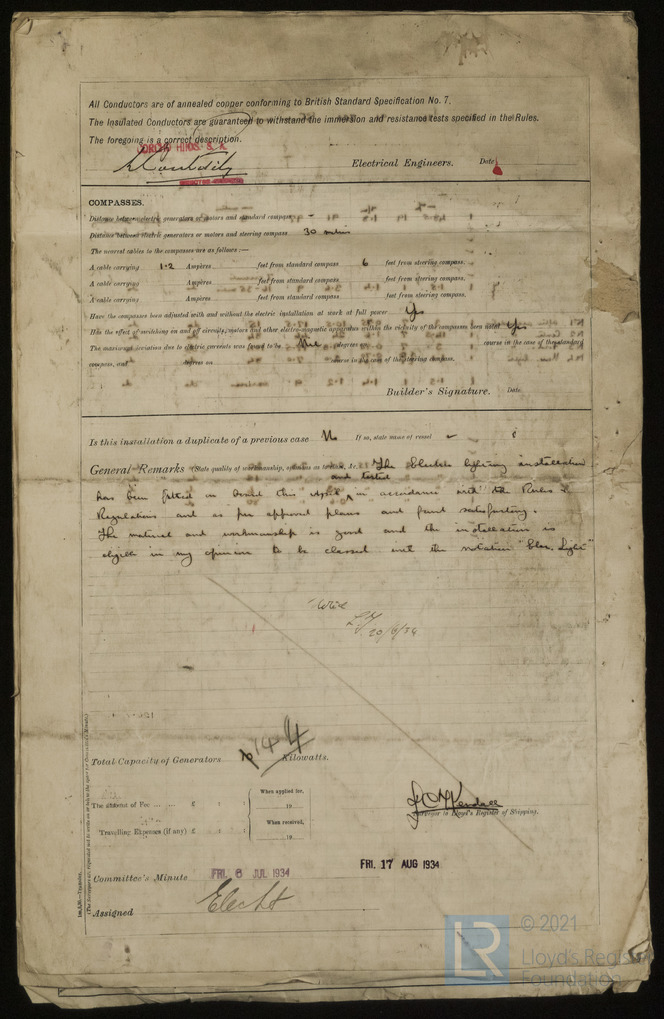 All Conductors are of annealed copper conforming to British Standard Specification No. 7.
The Insulated Conductors are guaranteed to withstand the immersion and resistance tests specified in the Rules.
The foregoing is a correct description.
Electrical Engineers. Date
COMPASSES.
Distance between electric generators or motors and standard compass -
Distance between electric generators or motors and steering compass 30
The nearest cables to the compasses are as follows:—
A cable carrying 1.2 Ampères feet from standard compass 6 feet from steering compass.
A cable carrying Ampères feet from standard compass feet from steering compass.
A cable carrying Ampères feet from standard compass feet from steering compass.
Have the compasses been adjusted with and without the electric installation at work at full power Yes
Has the effect of switching on and off circuits, motors and other electro-magnetic apparatus within the vicinity of the compasses been noted Yes
The maximum deviation due to electric currents was found to be Nil degrees on course in the case of the standard
compass, and degrees on course in the case of the steering compass.
Builder's Signature. Date
Is this installation a duplicate of a previous case No If so, state name of vessel
General Remarks (State quality of workmanship, opinions as to class, &c. The Electric lighting installation
and tested
has been fitted on board this in accordance with the Rules &
Regulations and as per approved plans and found satisfactory.
The material and workmanship is good and the installation is
eligible in my opinion to be classed with the notation "Elec. Light"
20/6/34
Total Capacity of Generators 14 4 Kilowatts.
The amount of Fee ... ... £ : :
When applied for,
19
Travelling Expenses (if any) £ : :
When received,
19
Surveyor to Lloyd's Register of Shipping.
Committee's Minute FRI. 6 JUL 1934 FRI. 17 AUG 1934
Assigned
LR
© 2021
Lloyd's Register
Foundation